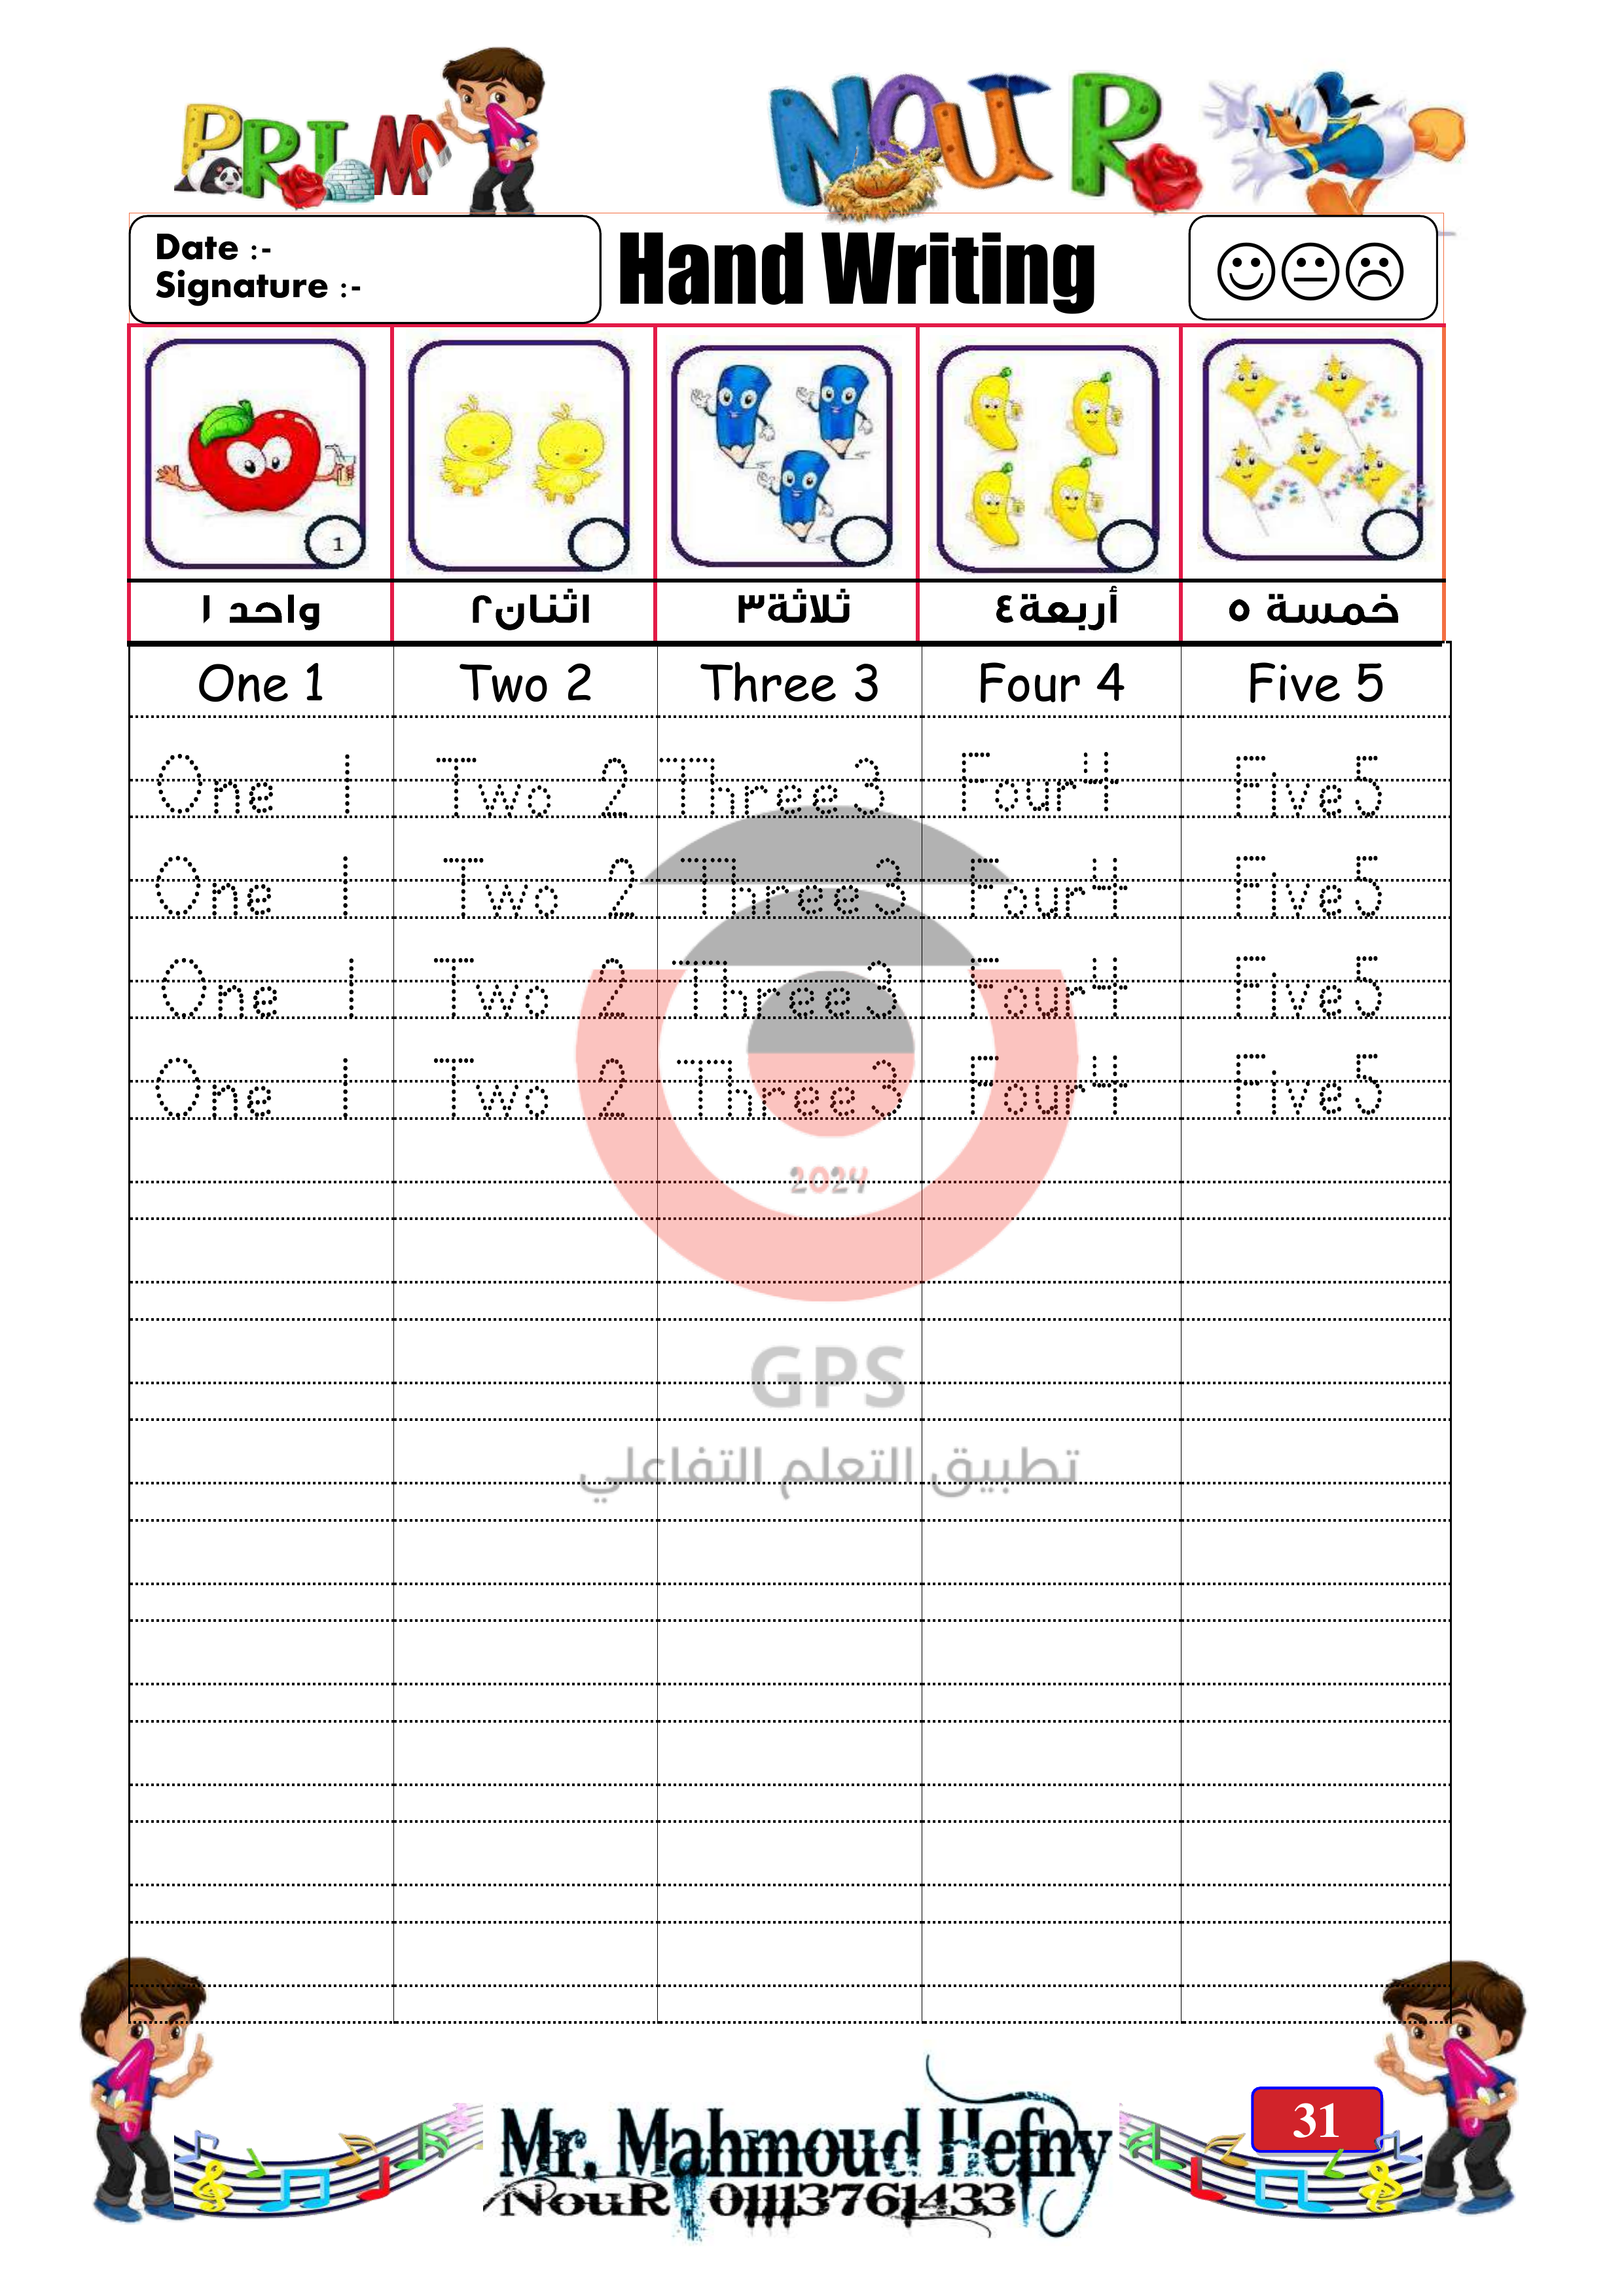 PRIM 1
NOUR
Date :-
Signature :-
Hand Writing
1
واحد ١
اثنان٢
ثلاثة٣
أربعة٤
خمسة ٥
One 1 Two 2 Three 3 Four 4 Five 5
One 1 Two 2 Three3 Four4 Five5
One 1 Two 2 Three3 Four4 Five5
One 1 Two 2 Three3 Four4 Five5
One 1 Two 2 Three3 Four4 Five5
2024
GPS
تطبيق التعلم التفاعلي
31
Mr. Mahmoud Hefny
NouR . 01113761433